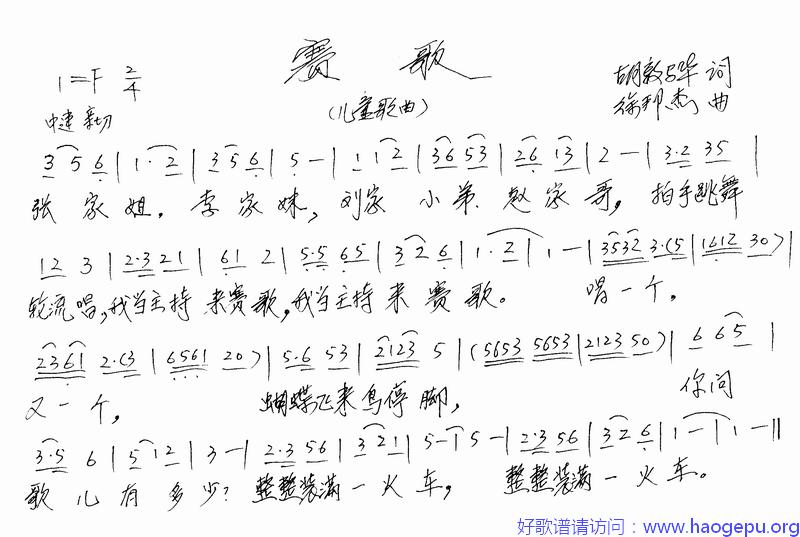 赛 歌
1=F 2/4
(儿童歌曲)
胡敦骅 词
徐邦杰 曲
中速 亲切
3 5 6 | 1· 2 | 3 5 6 | 5 — | 1 1 2 | 36 53 | 26 13 | 2 — | 3·2 35 |
张 家 姐, 李 家 妹, 刘家 小 弟 赵 家 哥, 拍手跳舞
12 3 | 2·3 21 | 61 2 | 5·5 65 | 3 2 6 | 1· 2 | 1 — | 3532 3·(5 | 1612 30) |
轮流唱,我当主持 来赛歌,我当主持 来 赛 歌。 唱一个,
2361 2·(3 | 6561 20) | 5·6 53 | 2123 5 | (5653 5653 | 2123 50) | 6 65 |
又一个, 蝴蝶飞来鸟停脚, 你问
3·5 6 | 5 12 | 3 — | 2·3 56 | 3 21 | 5 — | 5 — | 2·3 56 | 3 2 6 | 1 — | 1 — ‖
歌 儿 有 多 少? 整整装满一 火 车, 整整装满一 火 车。
好歌谱请访问：www.haogepu.org